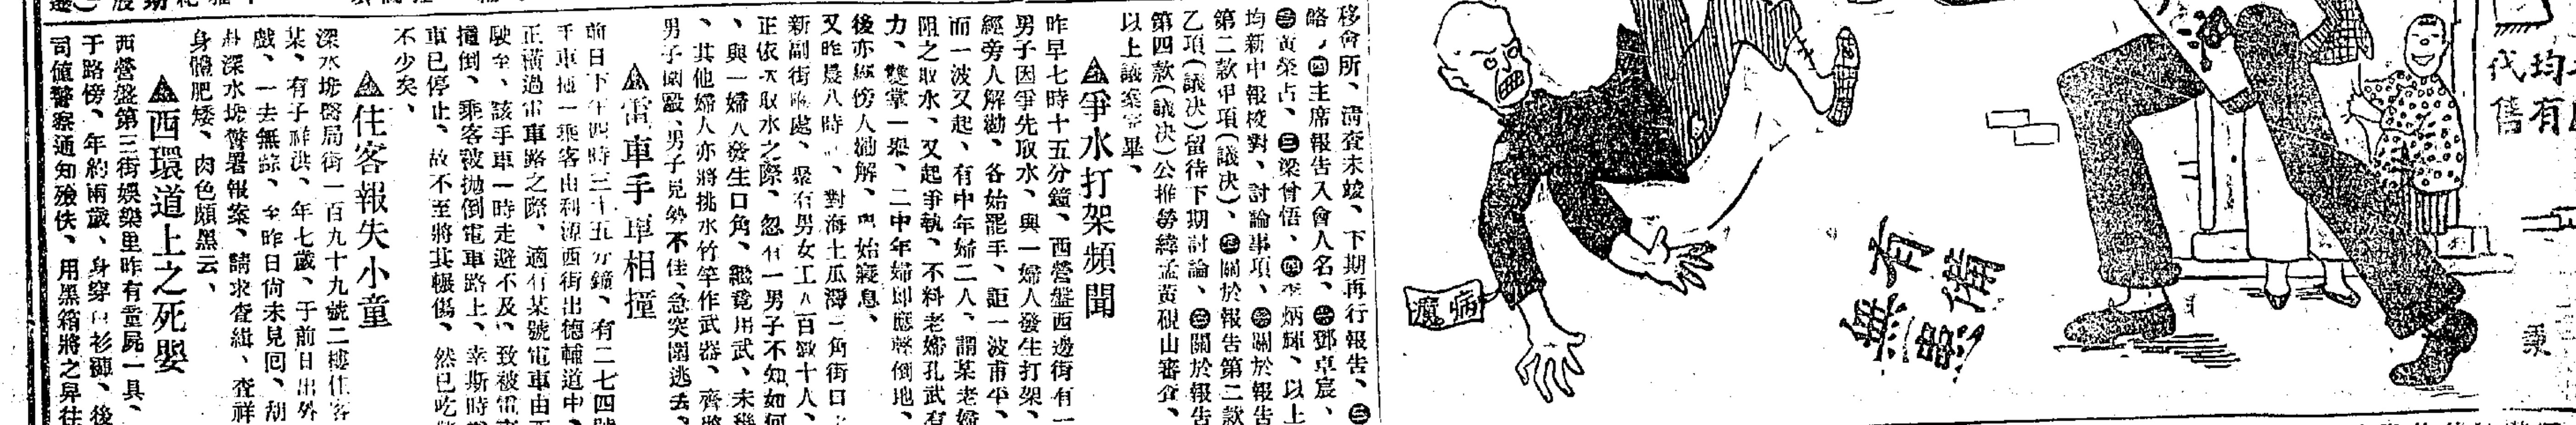 均有
代售
秉
有備
無患
病魔
移會所、清查未竣、下期再行報告、㊂
略、㊃主席報告入會人名、㊀鄧卓宸、
㊁黃榮占、㊂梁曾悟、㊃李炳輝、以上
均新中報校對、討論事項、㊀關於報告
第二款甲項(議決)、㊁關於報告第二款
乙項(議決)留待下期討論、㊂關於報告
第四款(議決)公推勞緯孟黃硯山審查、
以上議案完畢、
▲爭水打架頻聞
昨早七時十五分鐘、西營盤西邊街有一
男子因爭先取水、與一婦人發生打架、
經旁人解勸、各始罷手、詎一波甫平、
而一波又起、有中年婦二人、謂某老婦
阻之取水、又起爭執、不料老婦孔武有
力、雙掌一舉、二中年婦即應聲倒地、
後亦經傍人勸解、始寢息、
又昨晨八時、對海土瓜灣二角街口
新副街喉處、聚有男女工人百數十人、
正依次取水之際、忽有一男子不知如何
、與一婦人發生口角、繼竟用武、未幾
、其他婦人亦將挑水竹竿作武器、齊將
男子圍毆、男子見勢不佳、急突圍逃去、
▲電車手車相撞
前日下午四時三十五分鐘、有二七四號
手車搭一乘客由利源西街出德輔道中、
正橫過電車路之際、適有某號電車由西
駛至、該手車一時走避不及、致被電車
撞倒、乘客被拋倒電車路上、幸斯時電
車已停止、故不至將其輾傷、然已吃驚
不少矣、
▲住客報失小童
深水埗醫局街一百九十九號二樓住客
某、有子祥洪、年七歲、于前日出外
戲、一去無踪、至昨日尙未見囘、胡
赴深水埗警署報案、請求查緝、查祥
身體肥矮、肉色頗黑云、
▲西環道上之死嬰
西營盤第三街娛樂里昨有童屍一具、
于路傍、年約兩歲、身穿白衫褲、後
司値警察通知殮佚、用黑箱將之舁往